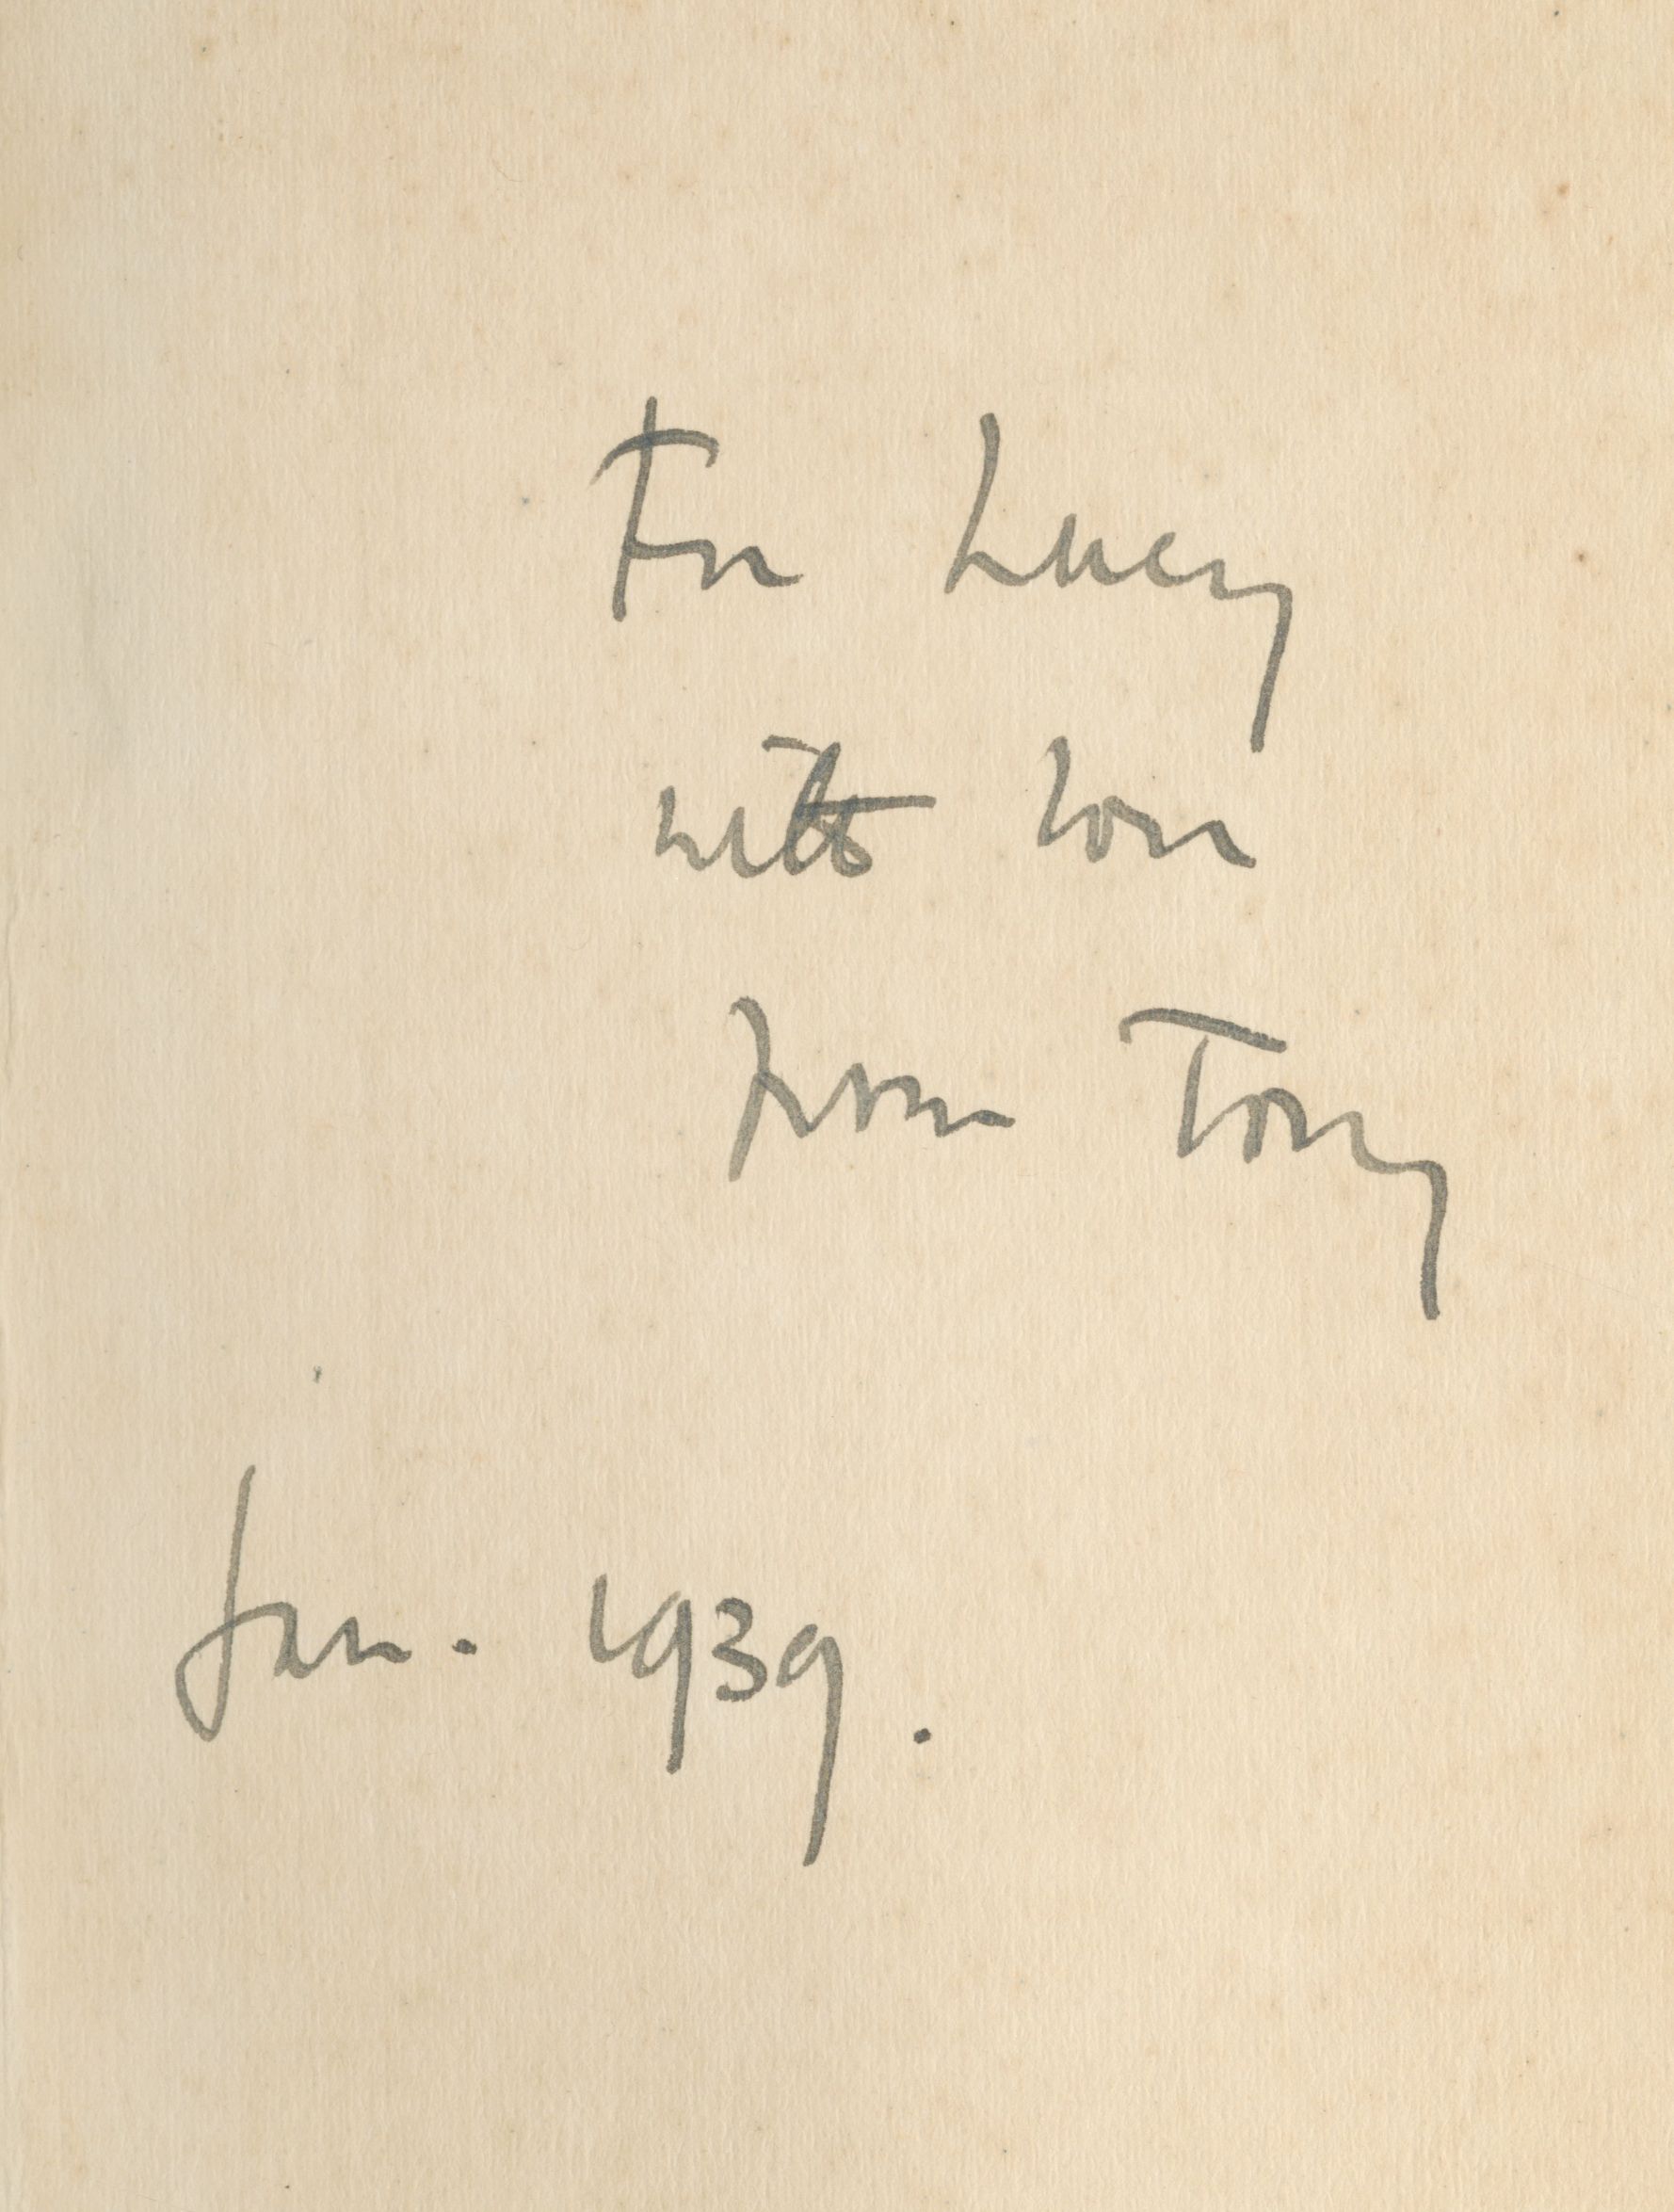 For Lucy
with love
from Tony
Jan. 1939.